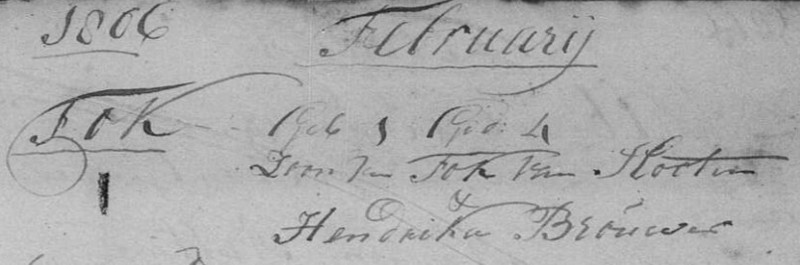 1806 Februarij
Fok Geb 3 Ged 4
Zoon van Fok van Slooten
&
Hendrika Brouwer
1